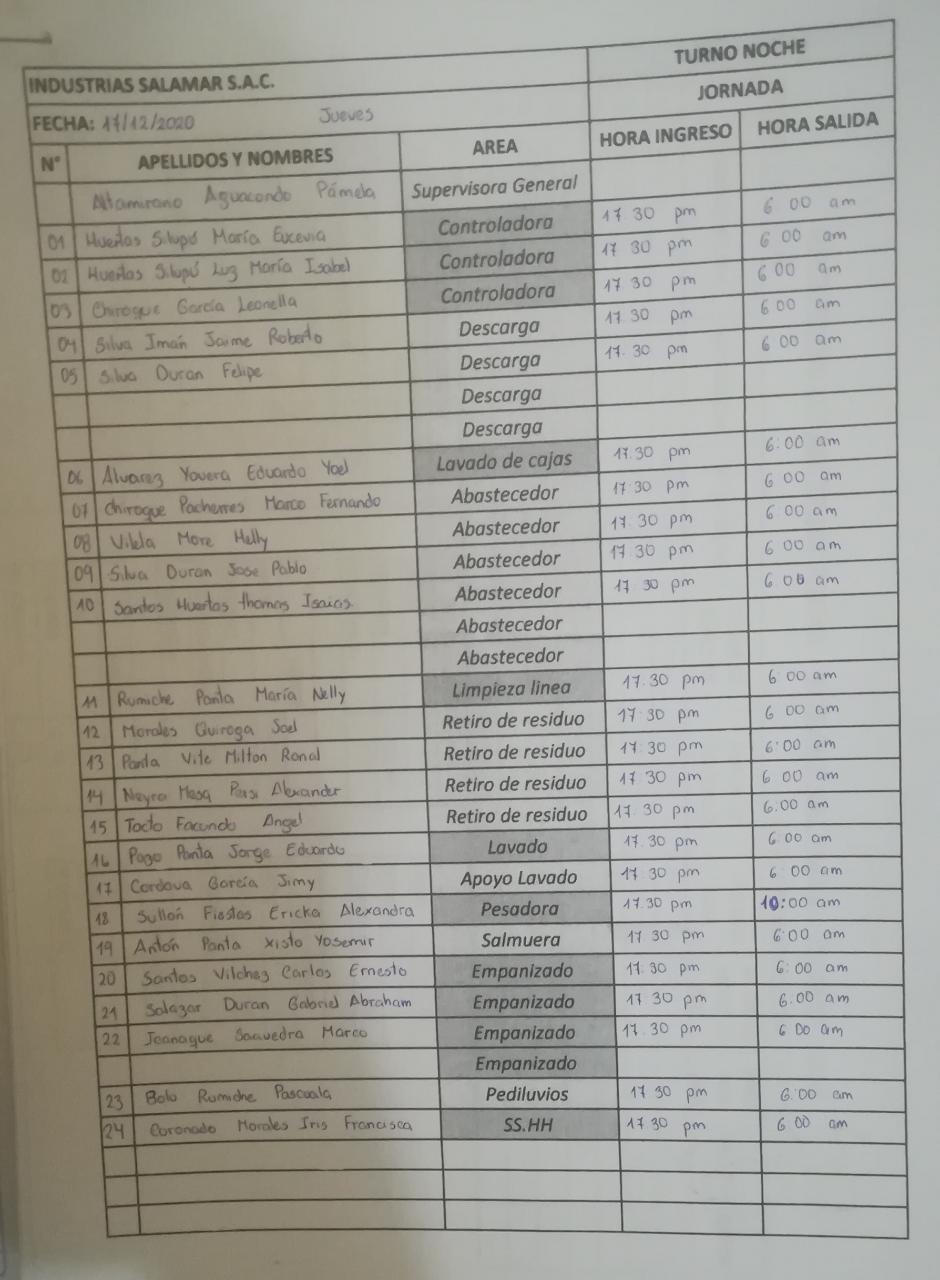 TURNO NOCHE
INDUSTRIAS SALAMAR S.A.C.
JORNADA
FECHA: 17/12/2020 Jueves
N° APELLIDOS Y NOMBRES AREA HORA INGRESO HORA SALIDA
Altamirano Aguacondo Pámela Supervisora General
01 Huertas Silupú María Eucevia Controladora 17 30 pm 6 00 am
02 Huertas Silupú Luz María Isabel Controladora 17 30 pm 6 00 am
03 Chiroque García Leonella Controladora 17 30 pm 6 00 am
04 Silva Imán Jaime Roberto Descarga 17.30 pm 6 00 am
05 Silva Duran Felipe Descarga 17.30 pm 6 00 am
Descarga
Descarga
06 Alvarez Yovera Eduardo Yoel Lavado de cajas 17.30 pm 6:00 am
07 Chiroque Pacherres Marco Fernando Abastecedor 17:30 pm 6 00 am
08 Vilela More Helly Abastecedor 17.30 pm 6:00 am
09 Silva Duran Jose Pablo Abastecedor 17.30 pm 6 00 am
10 Santos Huertas thomas Isaias Abastecedor 17 30 pm 6 00 am
Abastecedor
Abastecedor
11 Rumiche Panta María Nelly Limpieza linea 17.30 pm 6 00 am
12 Morales Quiroga Sael Retiro de residuo 17:30 pm 6 00 am
13 Panta Vite Milton Ronal Retiro de residuo 17:30 pm 6:00 am
14 Neyra Mesa Alexander Retiro de residuo 17.30 pm 6 00 am
15 Tocto Facundo Angel Retiro de residuo 17.30 pm 6:00 am
16 Pazo Panta Jorge Eduardo Lavado 17.30 pm 6 00 am
17 Cordova García Jimy Apoyo Lavado 17 30 pm 6 00 am
18 Sullón Fiestas Ericka Alexandra Pesadora 17.30 pm 10:00 am
19 Antón Panta Xisto Yosemir Salmuera 17 30 pm 6:00 am
20 Santos Vilchez Carlos Ernesto Empanizado 17.30 pm 6:00 am
21 Salazar Duran Gabriel Abraham Empanizado 17 30 pm 6.00 am
22 Saavedra Marco Empanizado 17.30 pm 6 00 am
Empanizado
23 Bolo Rumiche Pascuala Pediluvios 17 30 pm 6:00 am
24 Coronado Morales Iris Francisca SS.HH 17 30 pm 6 00 am